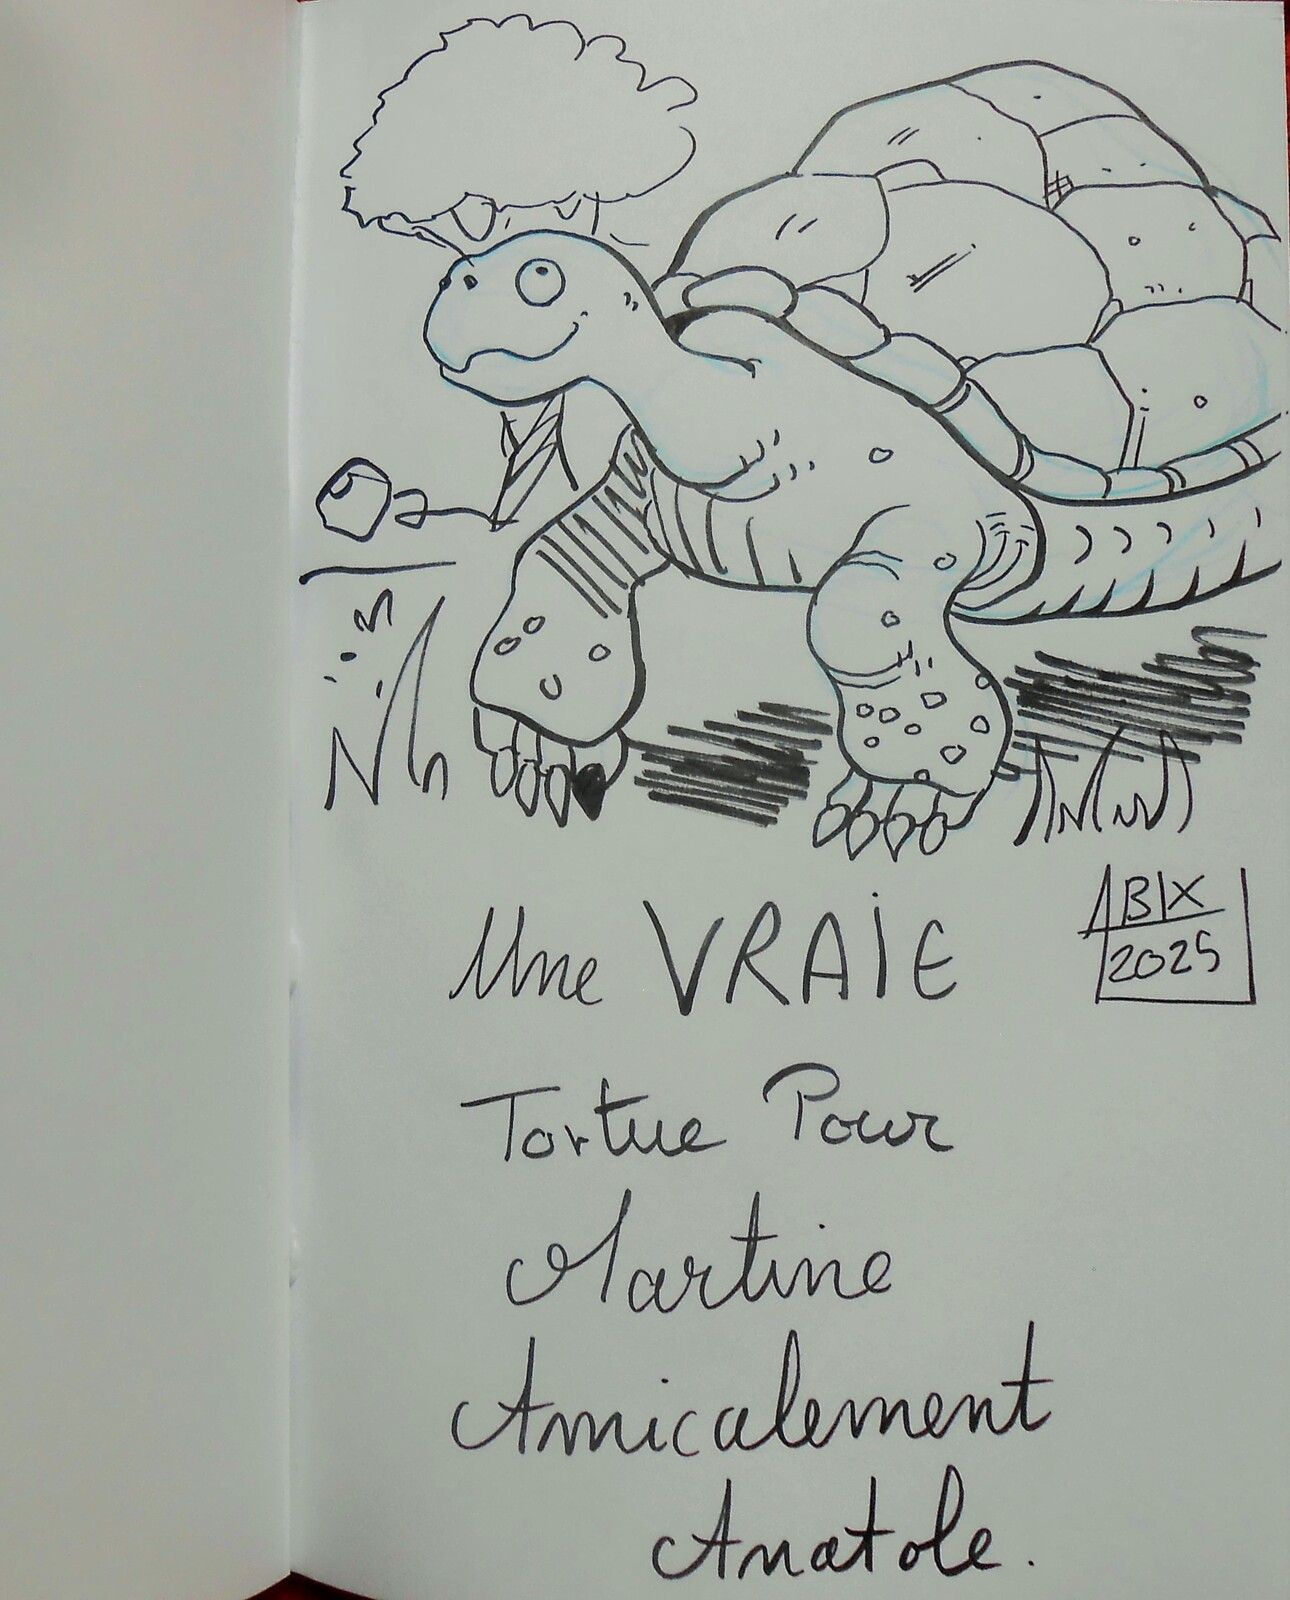 Une VRAIE
ABIX
2025
Tortue Pour
Martine
Amicalement
Anatole.